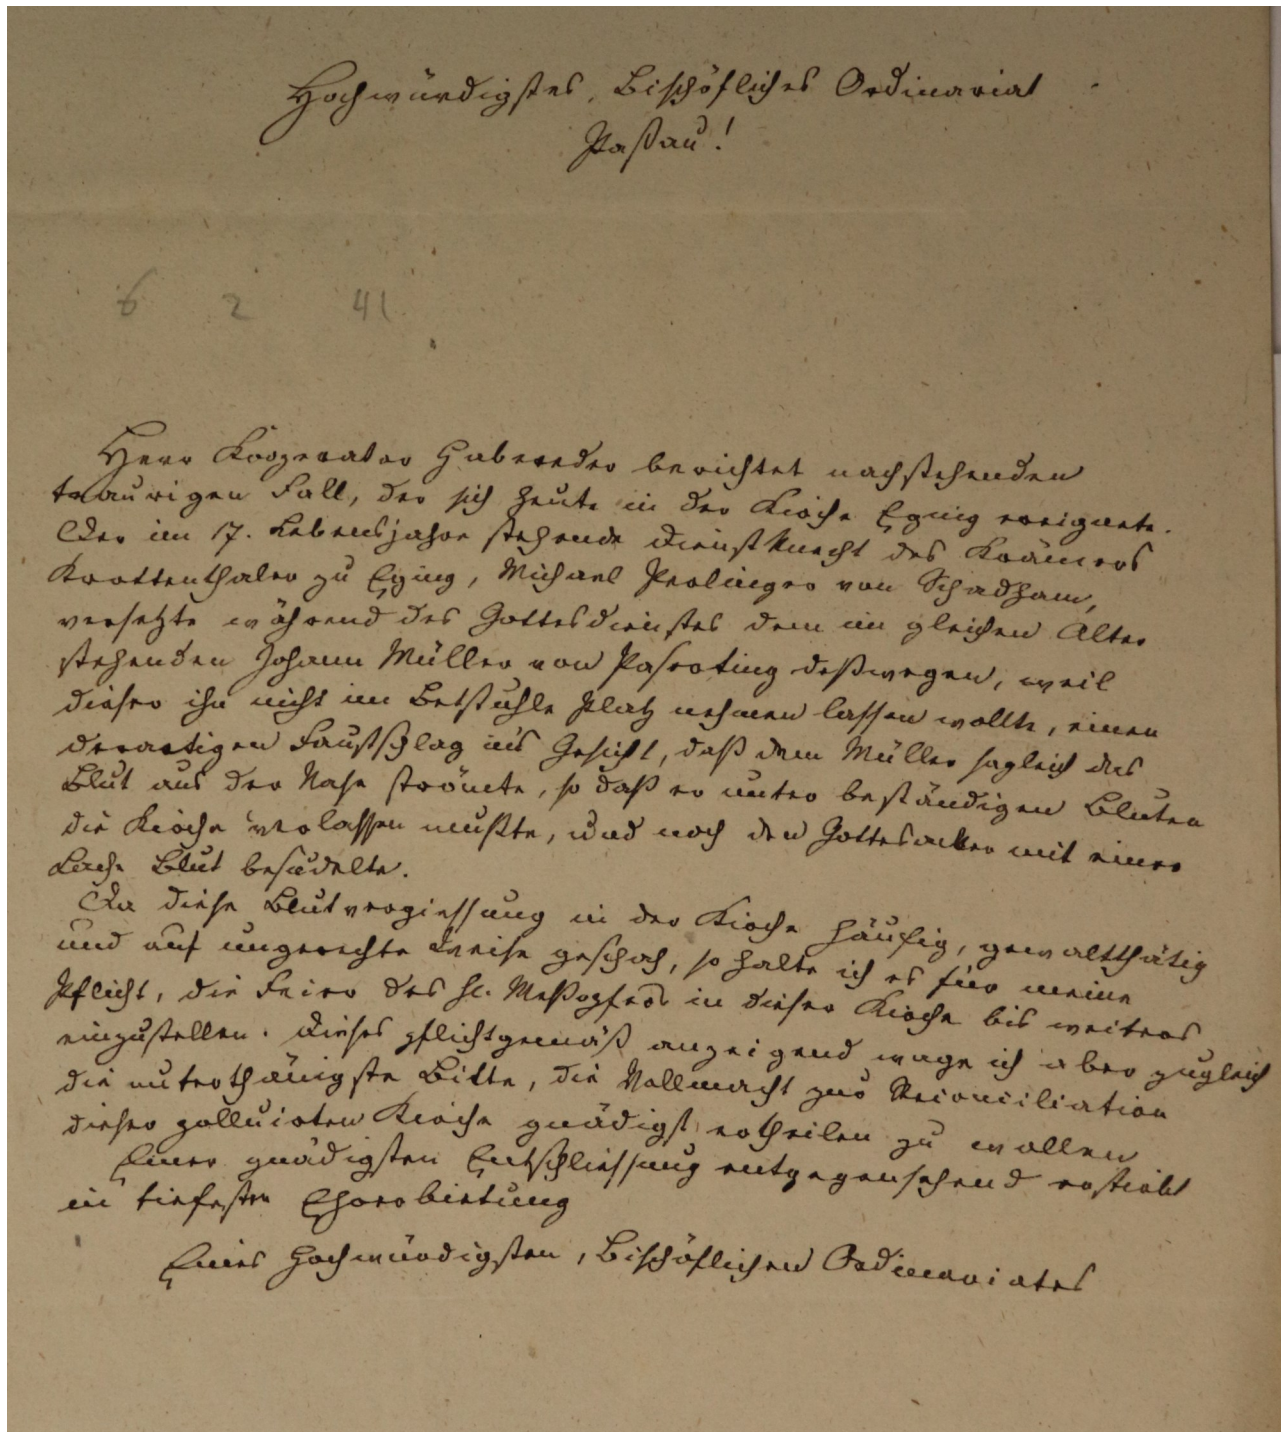 Hochwürdigstes, Bischöfliches Ordinariat
Paßau!
6 2 41
Herr Kooperator Habereder berichtet nachstehenden
traurigen Fall, der sich heute in der Kirche Eging ereignete.
Der im 17. Lebensjahre stehende Dienstknecht des Krämers
Krottenthaler zu Eging, Michael Prolinger von Schadham,
versetzte während des Gottesdienstes dem im gleichen Alter
stehenden Johann Müller von Pasroting deßwegen, weil
dieser ihn nicht im Betstuhle Platz nehmen lassen wollte, einen
derartigen Faustschlag in's Gesicht, daß dem Müller sogleich das
Blut aus der Nase strömte, so daß er unter beständigen Bluten
die Kirche verlassen mußte, und noch den Gottesacker mit einer
Lache Blut besudelte.
Da diese Blutvergiessung in der Kirche häufig, gewaltthätig
und auf ungerechte Weise geschah, so halte ich es für meine
Pflicht, die Feier des hl. Meßopfers in dieser Kirche bis weiters
einzustellen. Dieses pflichtgemäß anzeigend wage ich aber zugleich
die unterthänigste Bitte, die Vollmacht zur Reconciliation
dieser polluirten Kirche gnädigst ertheilen zu wollen
Einer gnädigsten Entschliessung entgegensehend erstirbt
in tiefester Ehrerbietung
Eines Hochwürdigsten, Bischöflichen Ordinariates